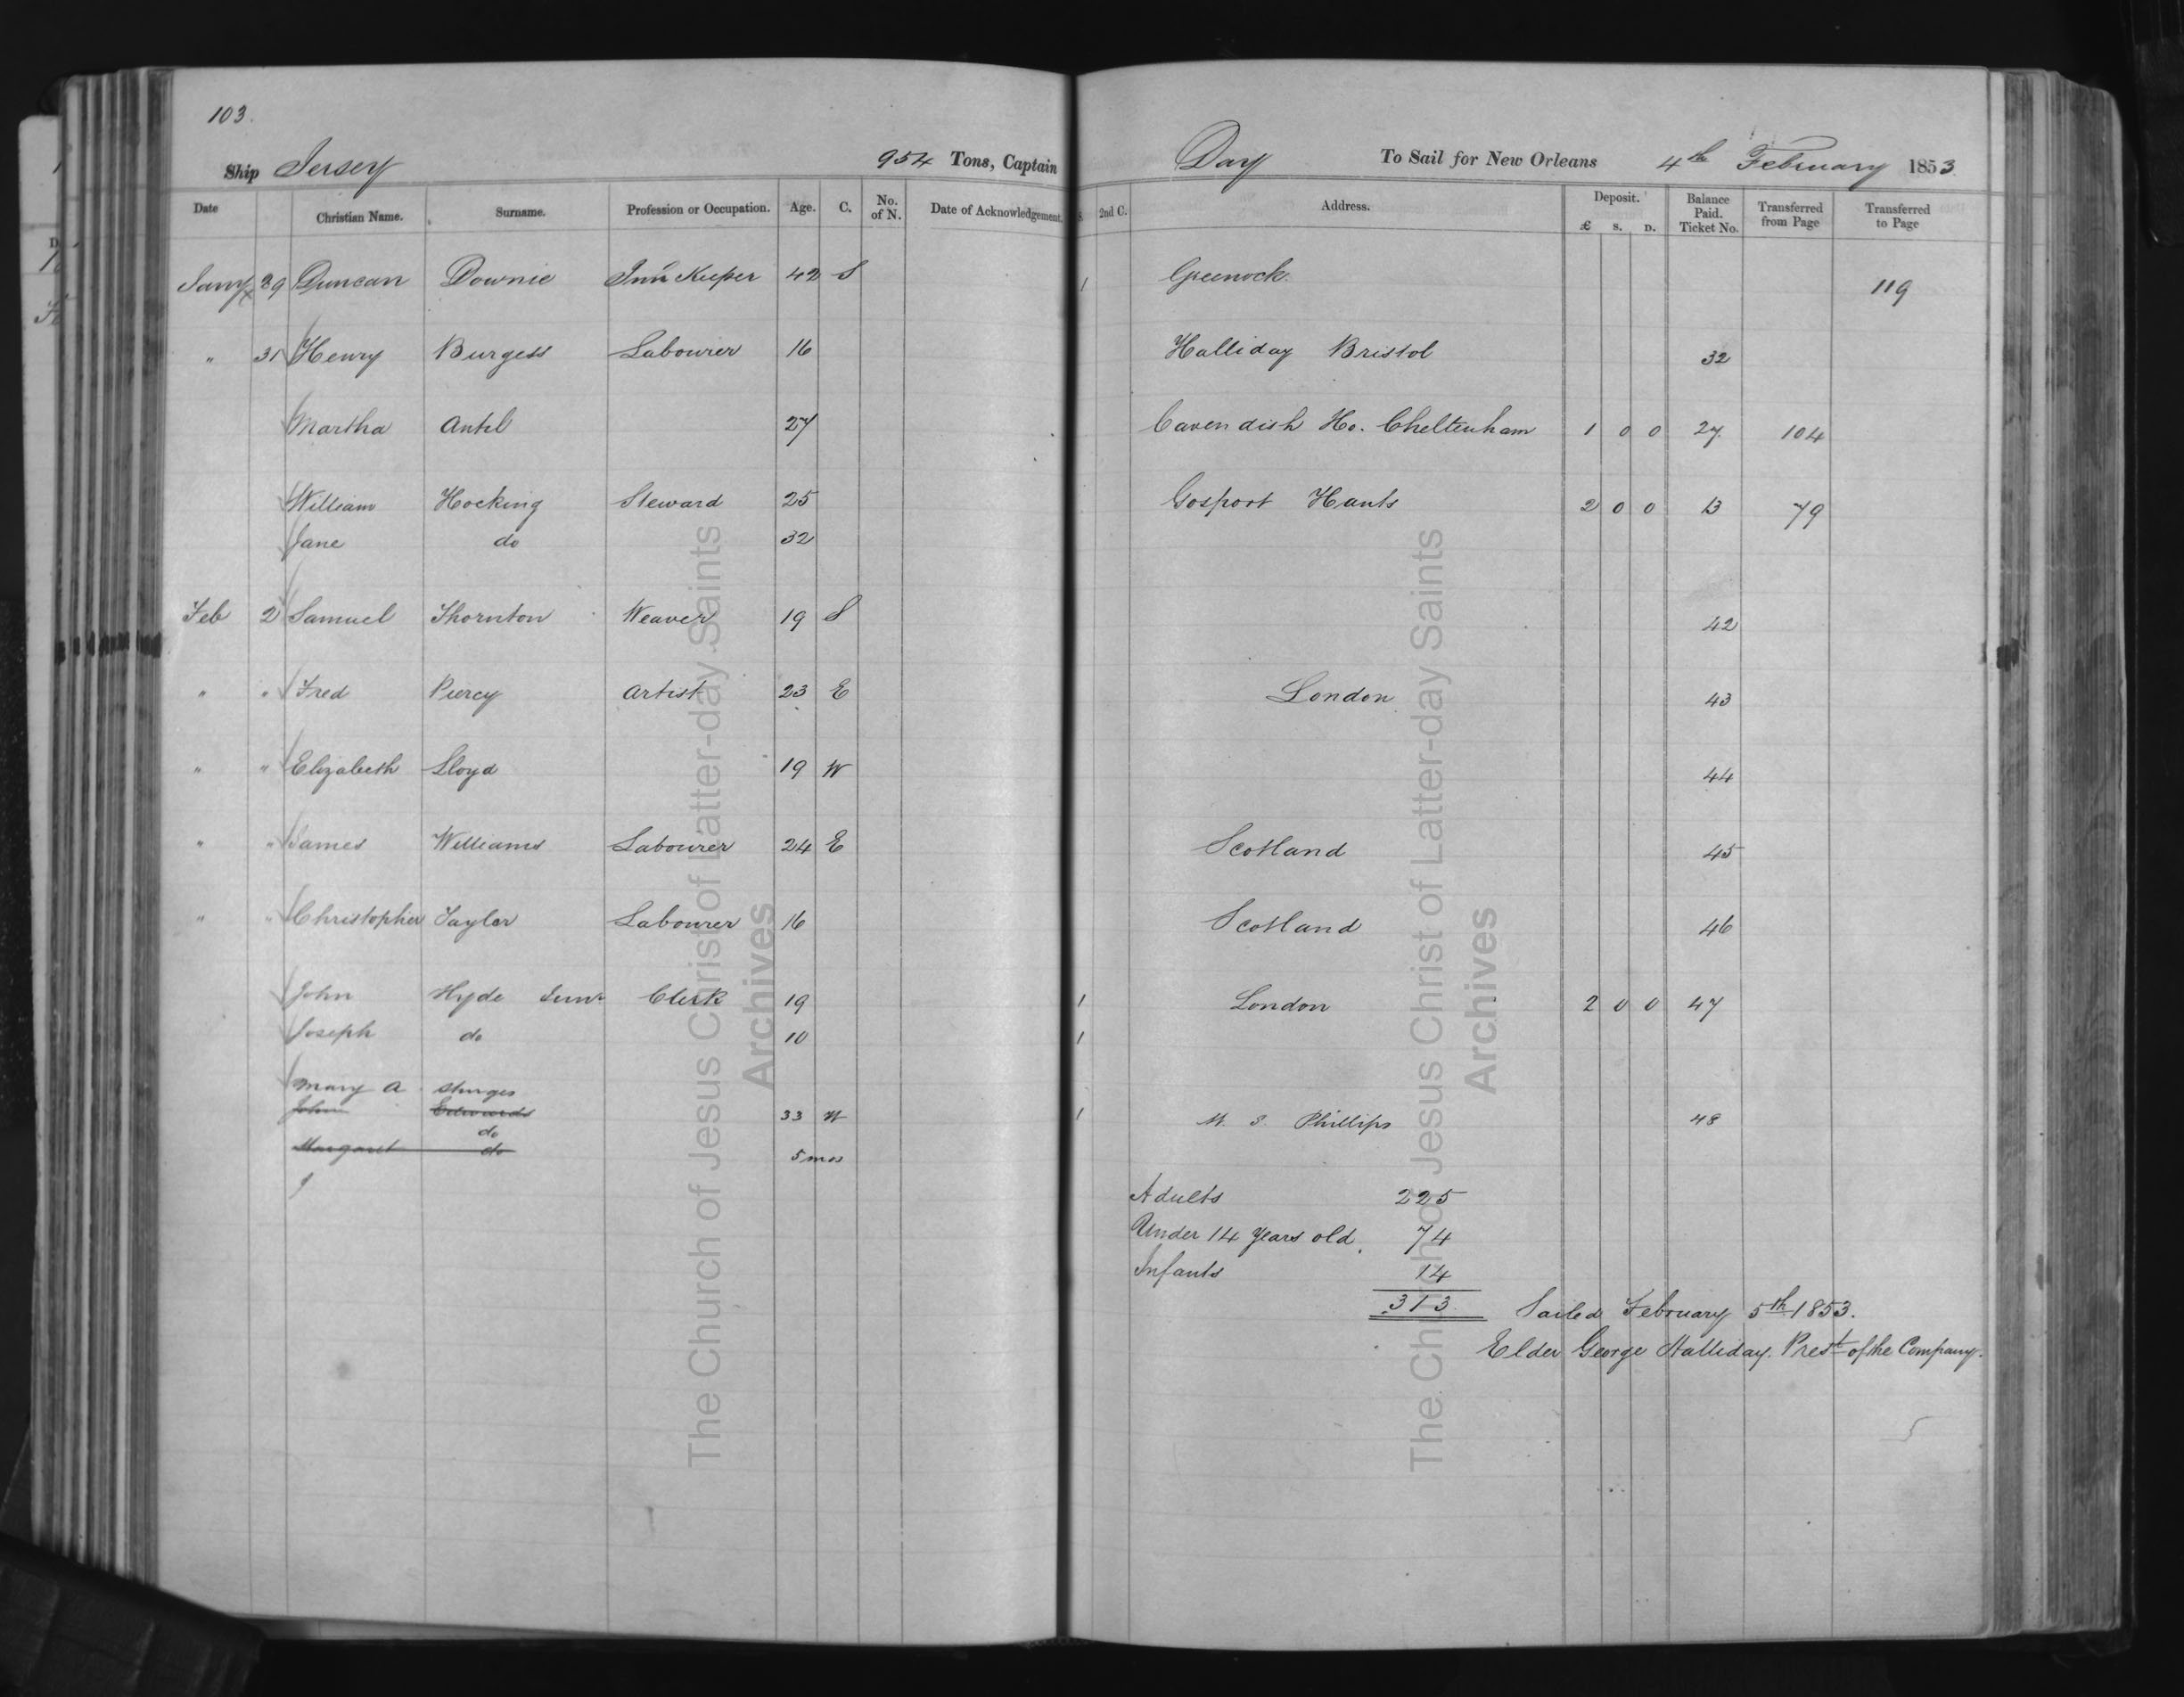 103.
Ship Jersey 954 Tons, Captain Day To Sail for New Orleans 4th February 1853
Date Christian Name. Surname. Profession or Occupation. Age. C. No. of N. Date of Acknowledgement. S. 2nd C. Address. Deposit. £ s. D. Balance Paid. Ticket No. Transferred from Page Transferred to Page
Jany 29 Duncan Downie Inn Keeper 42 S 1 Greenock. 119
" 31 Henry Burgess Labourer 16 Halliday Bristol 32
Martha Antil 27 Cavendish Ho. Cheltenham 1 0 0 27 104
William Hocking Steward 25 Gosport Hants 2 0 0 13 79
Jane do 32
Feb 2 Samuel Thornton Weaver 19 S 42
" " Fred Piercy Artist 23 E London 43
" " Elizabeth Lloyd 19 W 44
" " James Williams Labourer 24 E Scotland 45
" " Christopher Taylor Labourer 16 Scotland 46
John Hyde Junr Clerk 19 1 London 2 0 0 47
Joseph do 10 1
Mary A Sturges
John Edwards 33 W 1 W. S. Phillips 48
do
Margaret do 5 mos
Adults 225
Under 14 years old. 74
Infants 14
313 Sailed February 5th 1853.
Elder George Halliday. Prest of the Company.
The Church of Jesus Christ of Latter-day Saints
Archives
The Church of Jesus Christ of Latter-day Saints
Archives